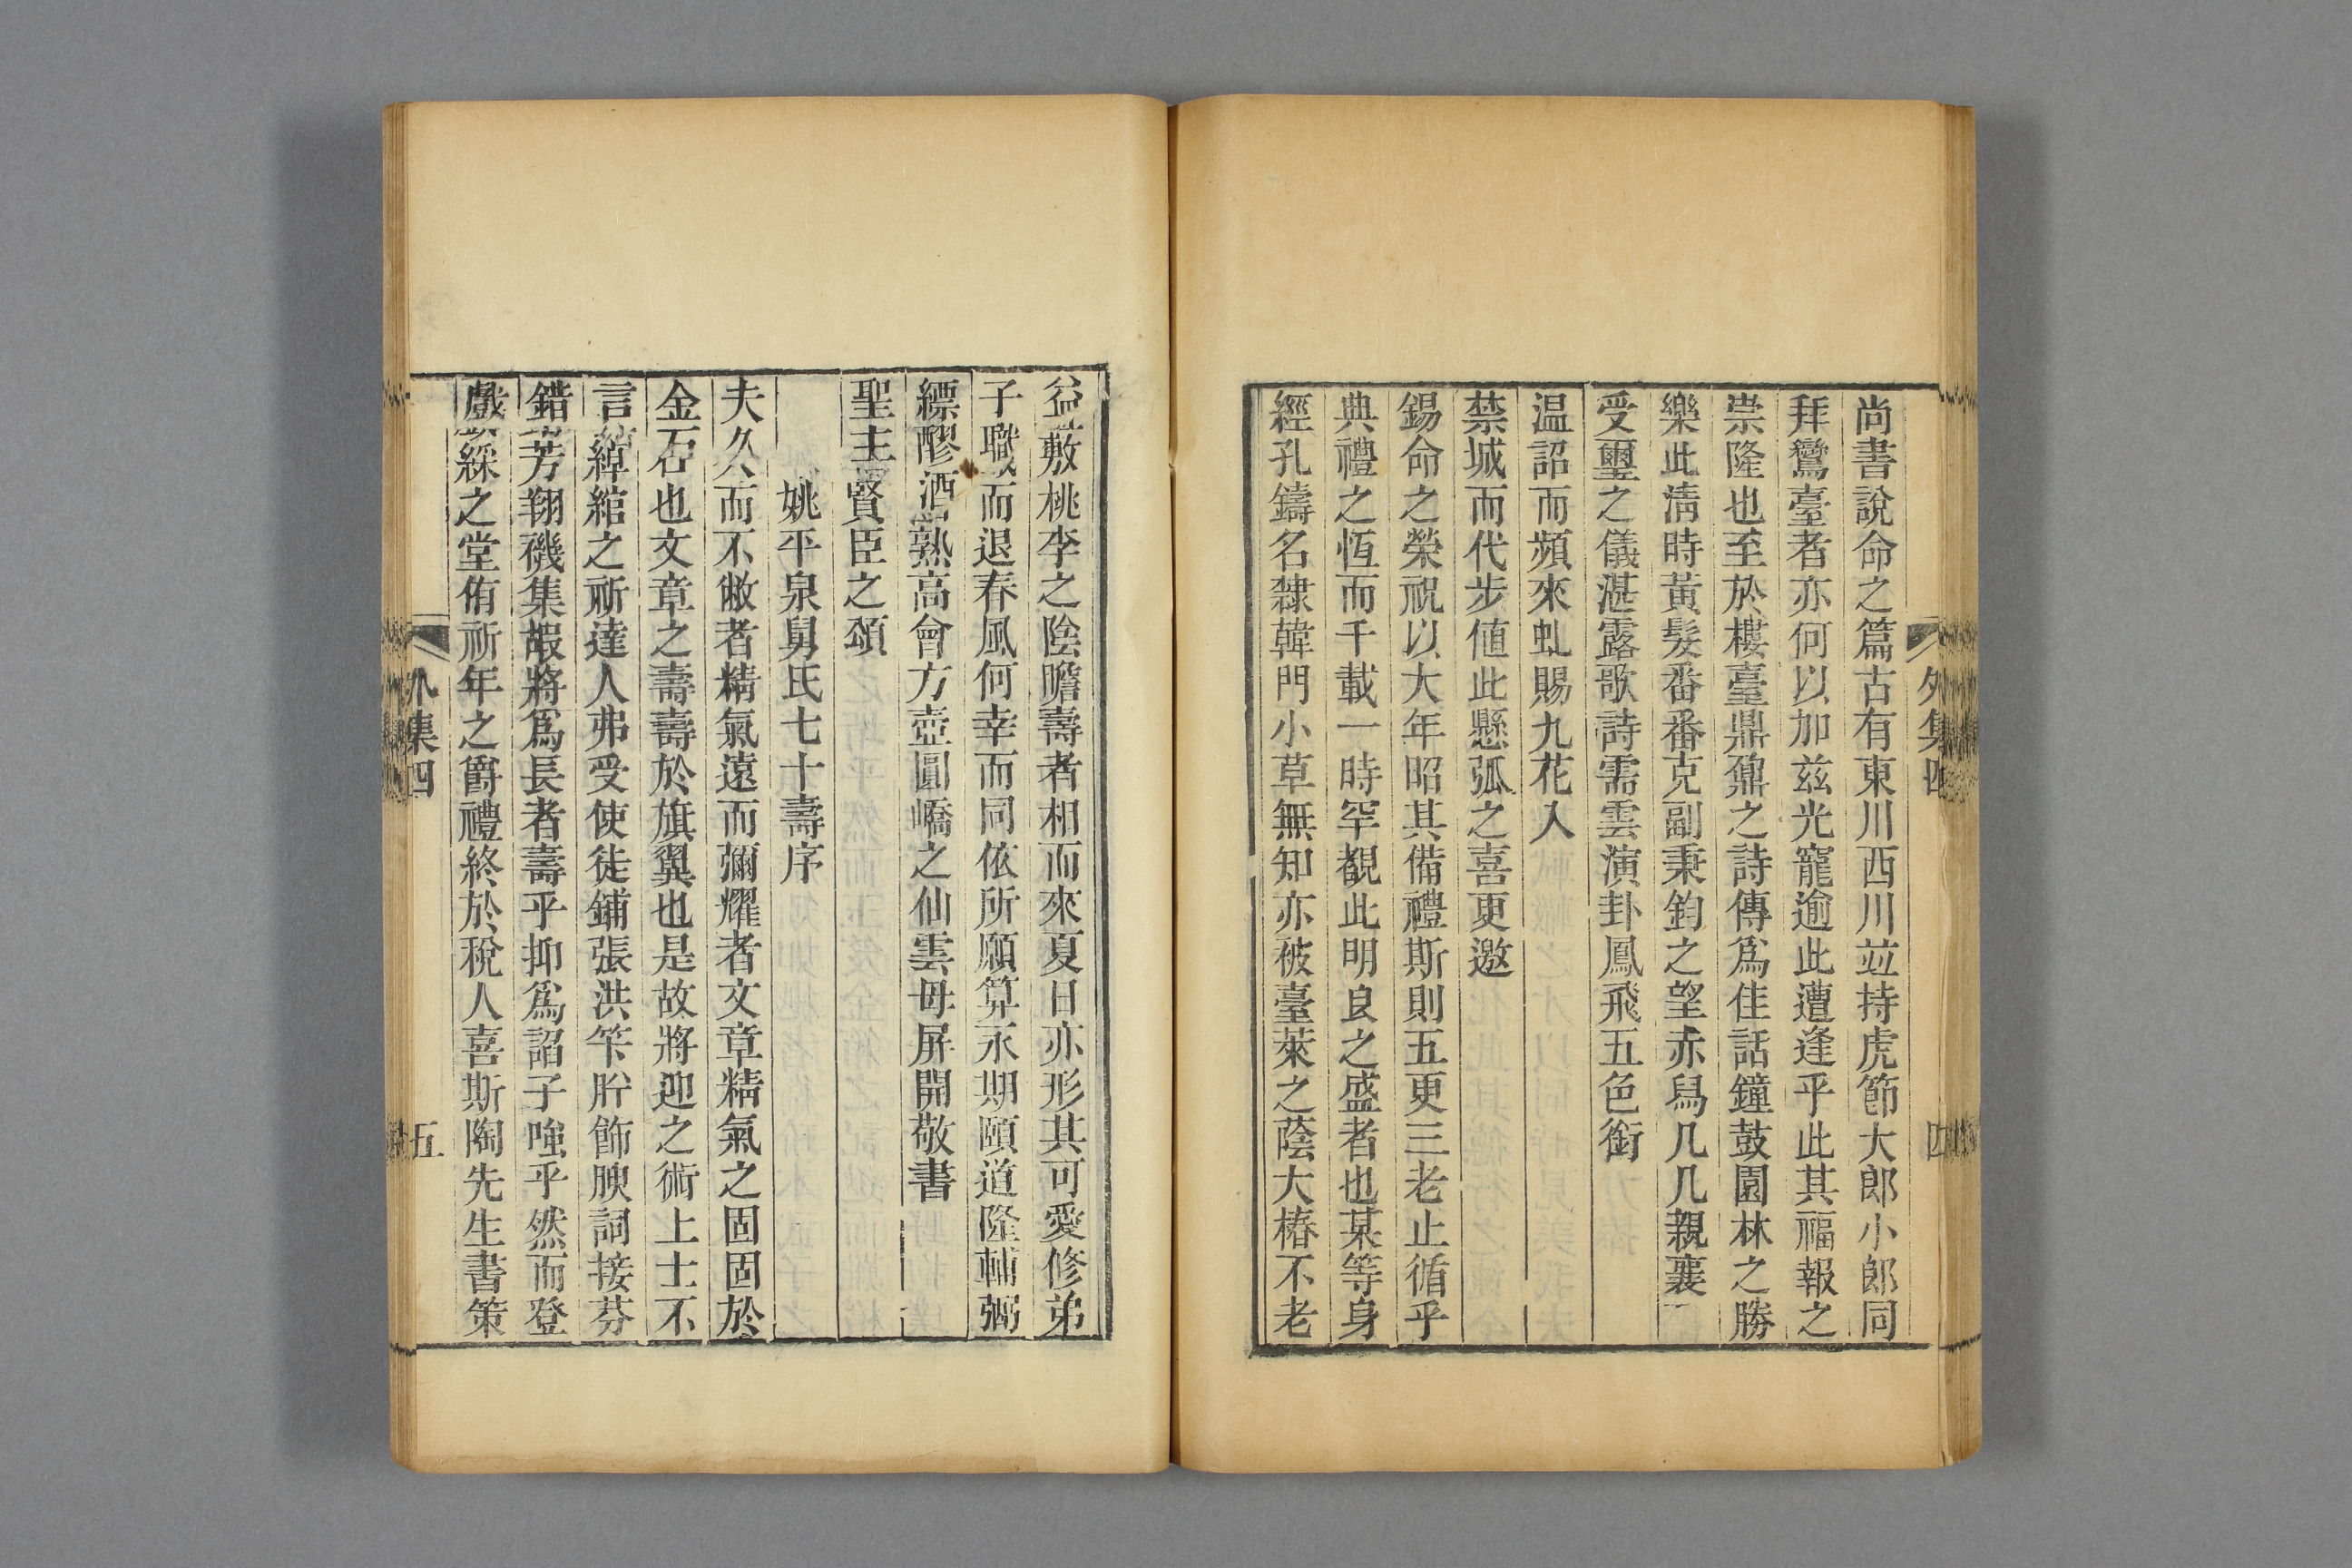 外集四
四
尚書說命之篇古有東川西川竝持虎節大郎小郎同
拜鸞臺者亦何以加茲光寵逾此遭逢乎此其福報之
崇隆也至於樓臺鼎鼐之詩傳爲佳話鐘鼓園林之勝
樂此淸時黃髮番番克副秉鈞之望赤舄几几親襄
受璽之儀湛露歌詩需雲演卦鳳飛五色銜
温詔而頻來虬賜九花入
禁城而代步値此懸弧之喜更邀
錫命之榮祝以大年昭其備禮斯則五更三老止循乎
典禮之恆而千載一時罕覩此明良之盛者也某等身
經孔鑄名隸韓門小草無知亦被臺萊之蔭大椿不老
益敷桃李之陰瞻壽者相而來夏日亦形其可愛修弟
子職而退春風何幸而同依所願算永期頤道隆輔弼
縹醪酒熟高會方壺圓嶠之仙雲母屏開敬書
聖主賢臣之頌
姚平泉舅氏七十壽序
夫久而不敝者精氣遠而彌耀者文章精氣之固固於
金石也文章之壽壽於旗翼也是故將迎之術上士不
言綽綰之祈達人弗受使徒鋪張洪筆腁飾腴詞接芬
錯芳翔磯集嘏將爲長者壽乎抑爲諂子嗤乎然而登
戲綵之堂侑祈年之爵禮終於稅人喜斯陶先生書策
外集四
五